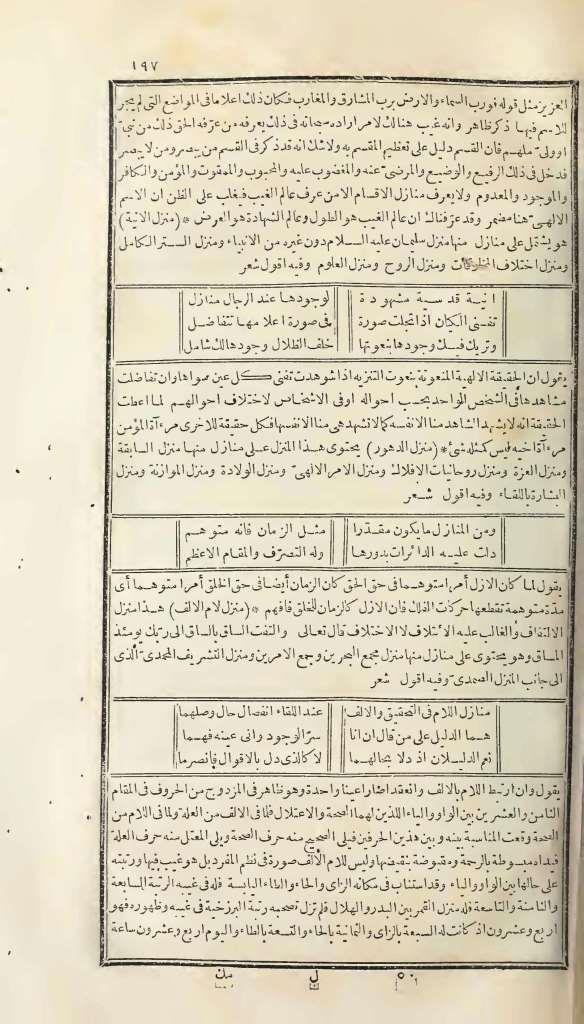 ١٩٧
العزيز مثل قوله فورب السماء والارض برب المشارق والمغارب فكان ذلك اعلاما فى المواضع التى لم يجر
للاسم فيها ذكر ظاهر وانه غيب هنالك لامر اراده سبحانه فى ذلك يعرفه من عرفه الحق ذلك من نبىّ
اوولىّ ملهم فان القسم دليل على تعظيم المقسم به ولا شك انه قد ذكر فى القسم من يبصر ومن لا يبصر
فدخل فى ذلك الرفيع والوضيع والمرضىّ عنه والمغضوب عليه والمحبوب والممقوت والمؤمن والكافر
والموجود والمعدوم ولا يعرف منازل الاقسام الا من عرف عالم الغيب فيغلب على الظن ان الاسم
الالهىّ هنا مضمر وقد عرّفناك ان عالم الغيب هو الطول وعالم الشهادة هو العرض * (منزل الانية)
هو يشتمل على منازل منها منزل سليمان عليه السلام دون غيره من الانبياء ومنزل الستر الكامل
ومنزل اختلاف المخلوقات ومنزل الروح ومنزل العلوم وفيه اقول شعر
انية قدسية مشهودة لوجودها عند الرجال منازل
تفنى الكيان اذا تجلت صورة فى صورة اعلامها تتفاضل
وتريك فيك وجودها بنعوتها خلف الظلال وجودها لك شامل
يقول ان الحقيقة الالهية المنعوتة بنعوت التنزيه اذا شوهدت تفنى كل عين سواها وان تفاضلت
مشاهدها فى الشخص الواحد بحسب احواله اوفى الاشخاص لاختلاف احوالهم لما اعطت
الحقيقة انه لا يشهد الشاهد منا الا نفسه كما لا تشهد هى منا الا نفسها فكل حقيقة للاخرى مرءآة المؤمن
مرءآة اخيه ليس كمثله شئ * (منزل الدهور) يحتوى هذا المنزل على منازل منها منزل السابقة
ومنزل العزة ومنزل روحانيات الافلاك ومنزل الامر الالهىّ ومنزل الولادة ومنزل الموازنة ومنزل
البشارة باللقاء وفيه اقول شعر
ومن المنازل ما يكون مقدّرا مثل الزمان فانه متوهم
دلت عليه الدائرات بدورها وله التصرّف والمقام الاعظم
يقول لما كان الازل أمرا متوهما فى حق الحق كان الزمان أيضا فى حق الخلق أمرا متوهما أى
مدّة متوهمة تقطعها حركات الفلك فان الازل كالزمان للخلق فافهم * (منزل لام الالف) هذا منزل
الالتفاف والغالب عليه الائتلاف لا الاختلاف قال تعالى والتفت الساق بالساق الى ربك يومئذ
المساق وهو يحتوى على منازل منها منزل مجمع البحرين وجمع الامرين ومنزل التشريف المحمدىّ الذى
الى جانب المنزل الصمدىّ وفيه اقول شعر
منازل اللام فى التحقيق والالف عند اللقاء انفصال حال وصلهما
هما الدليل على من قال ان انا سرّ الوجود وانى عينه فهما
نعم الدليلان اذ دلا بحالهما لا كالذى دل بالاقوال فانصرما
يقول وان ارتبط اللام بالالف وانعقد اصارا عينا واحدة وهو ظاهر فى المزدوج من الحروف فى المقام
الثامن والعشرين بين الواو والياء اللذين لهما الصحة والاعتلال فلما فى الالف من العلة ولما فى اللام من
الصحة وقعت المناسبة بينه وبين هذين الحرفين فيلى الصحيح منه حرف الصحة ويلى المعتل منه حرف العلة
فيداه مبسوطة بالرحمة ومقبوضة بنقيضها وليس للام الألف صورة فى نظم المفرد بل هو غيب فيها ورتبته
على حالها بين الواو والياء وقد استناب فى مكانه الزاى والحاء والطاء اليابسة فله فى غيبه الرتبة السابعة
والثامنة والتاسعة فله منزل القمر بين البدر والهلال فلم تزل تصحبه رتبة البرزخية فى غيبه وظهوره فهو
اربع وعشرون اذ كانت له السبعة بالزاى والثمانية بالحاء والتسعة بالطاء واليوم اربع وعشرون ساعة
٥٠ ل مك